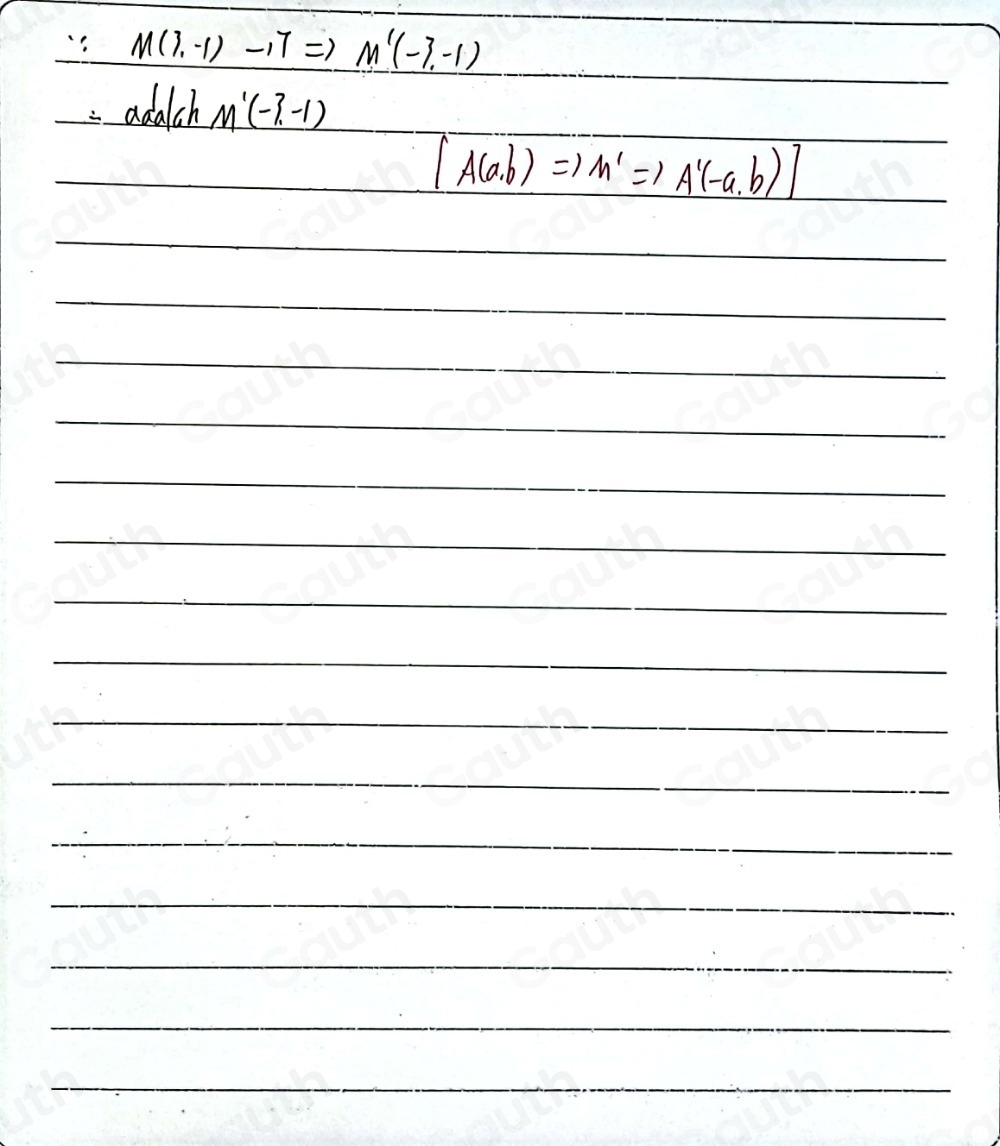 ∵ M(3,-1) → T => M'(-3,-1)
= adalah M'(-3,-1)
[A(a,b) => M' => A'(-a,b)]